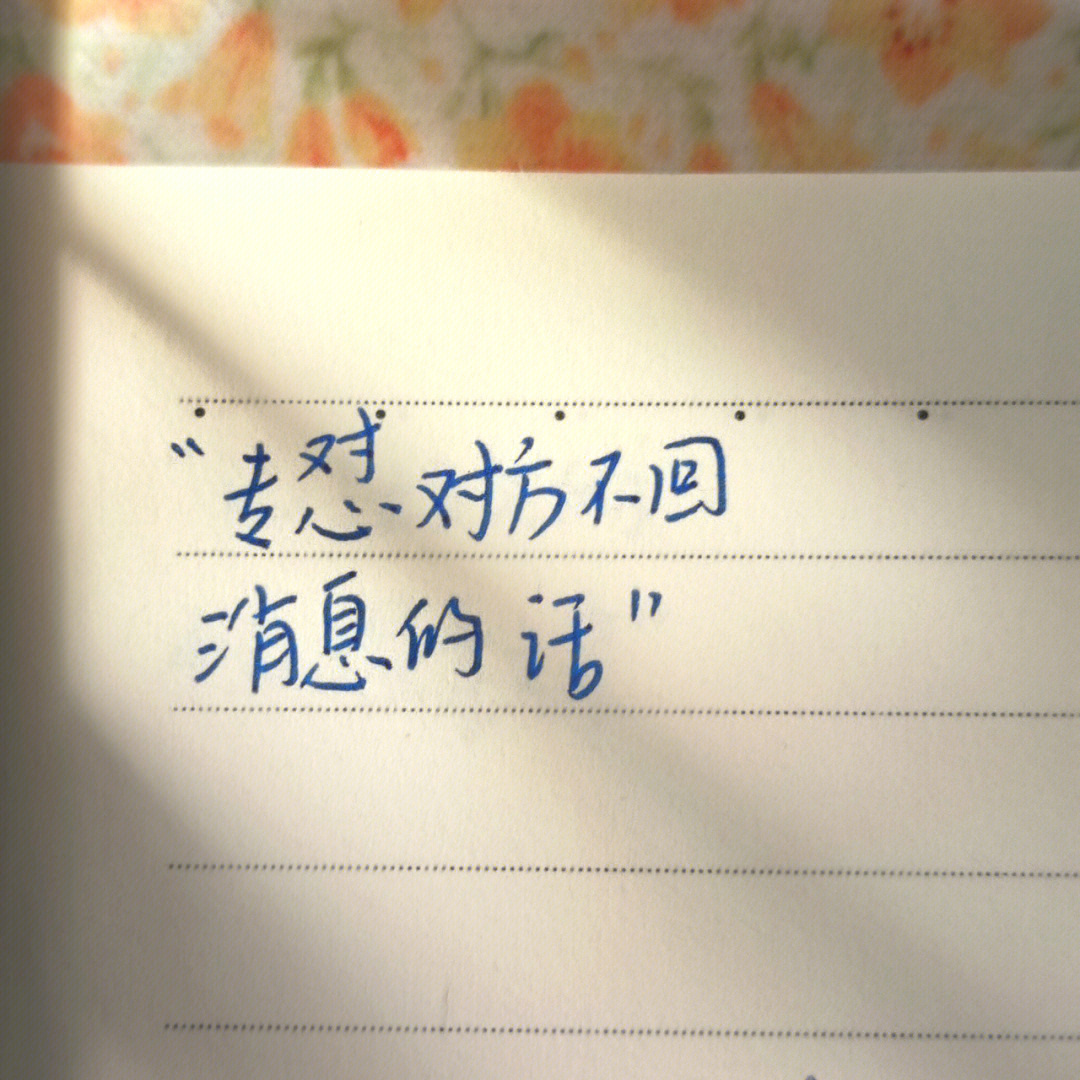 “专怼对方不回
消息的话”